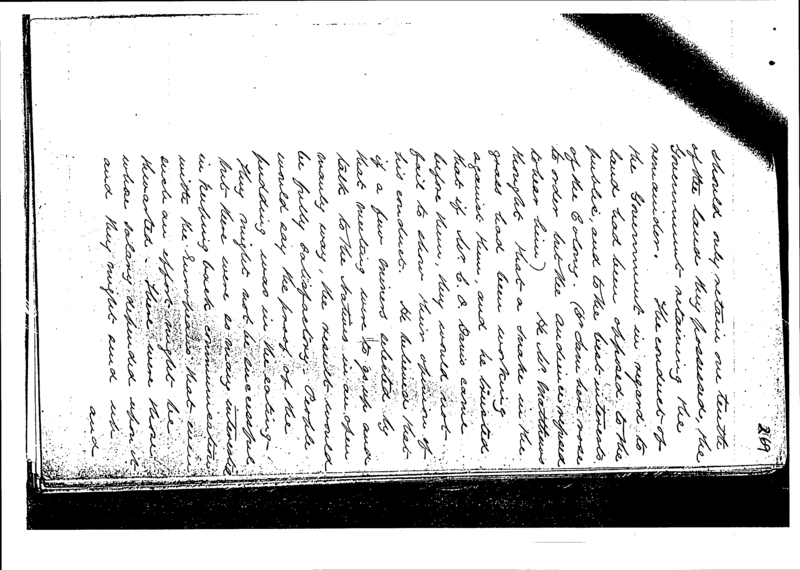 269
should only retain one tenth
of the land they possessed, the
Government retaining the
remainder. The conduct of
the Government in regard to
land had been opposed to the
public, and to the best interests
of the Colony. (Mr Davis here rose
to order but the audience refused
to hear him) He Mr Matthews
thought that a snake in the
grass had been working
against them, and he trusted
that if Mr. C. O. Davis came
before them, they would not
fail to show their opinion of
his conduct. He believed that
if a few miners elected by
that meeting were to go up and
talk to the Natives in an open
manly way, the result would
be fully satisfactory. People
would say the proof of the
pudding was in the eating -
They might not be successful,
but there were so many interests
in keeping back communication
with the Europeans that even
such an effort might be
thwarted. There were those
whose salary depended upon it
and they might end in
and